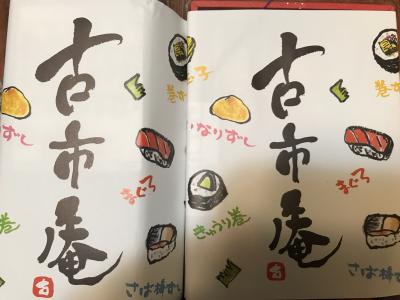 古市庵
ずし
巻ず
まぐろ
り巻
さば棒ずし
古
古市庵
子
いなりずし
巻ず
まぐろ
きゅうり巻
さば棒
古